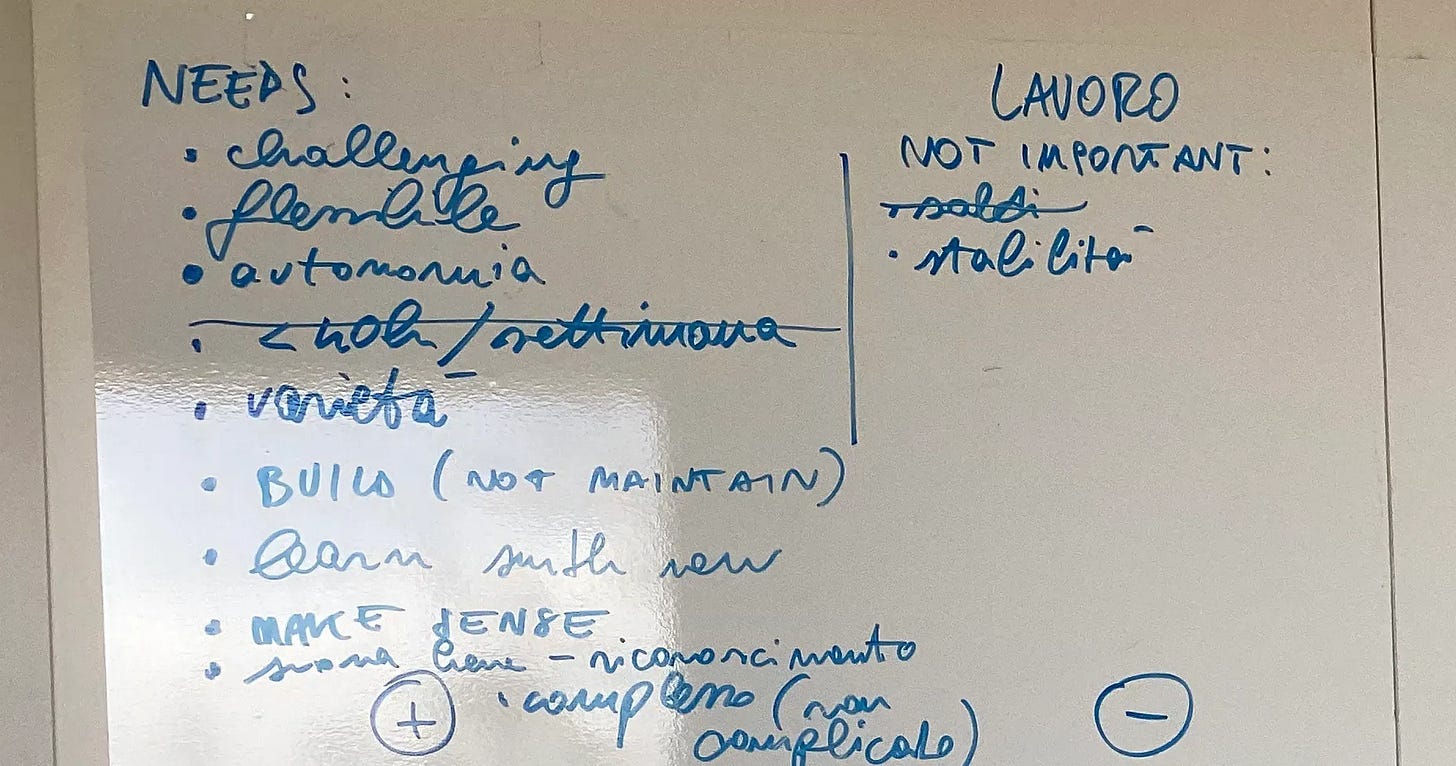 NEEDS:
• challenging
• flessibile
• autonomia
• < 40h/settimana
• varietà
• BUILD (NOT MAINTAIN)
• learn smth new
• MAKE SENSE
• suona bene - riconoscimento
• complesso (non
complicato)
+
LAVORO
NOT IMPORTANT:
• soldi
• stabilità
-